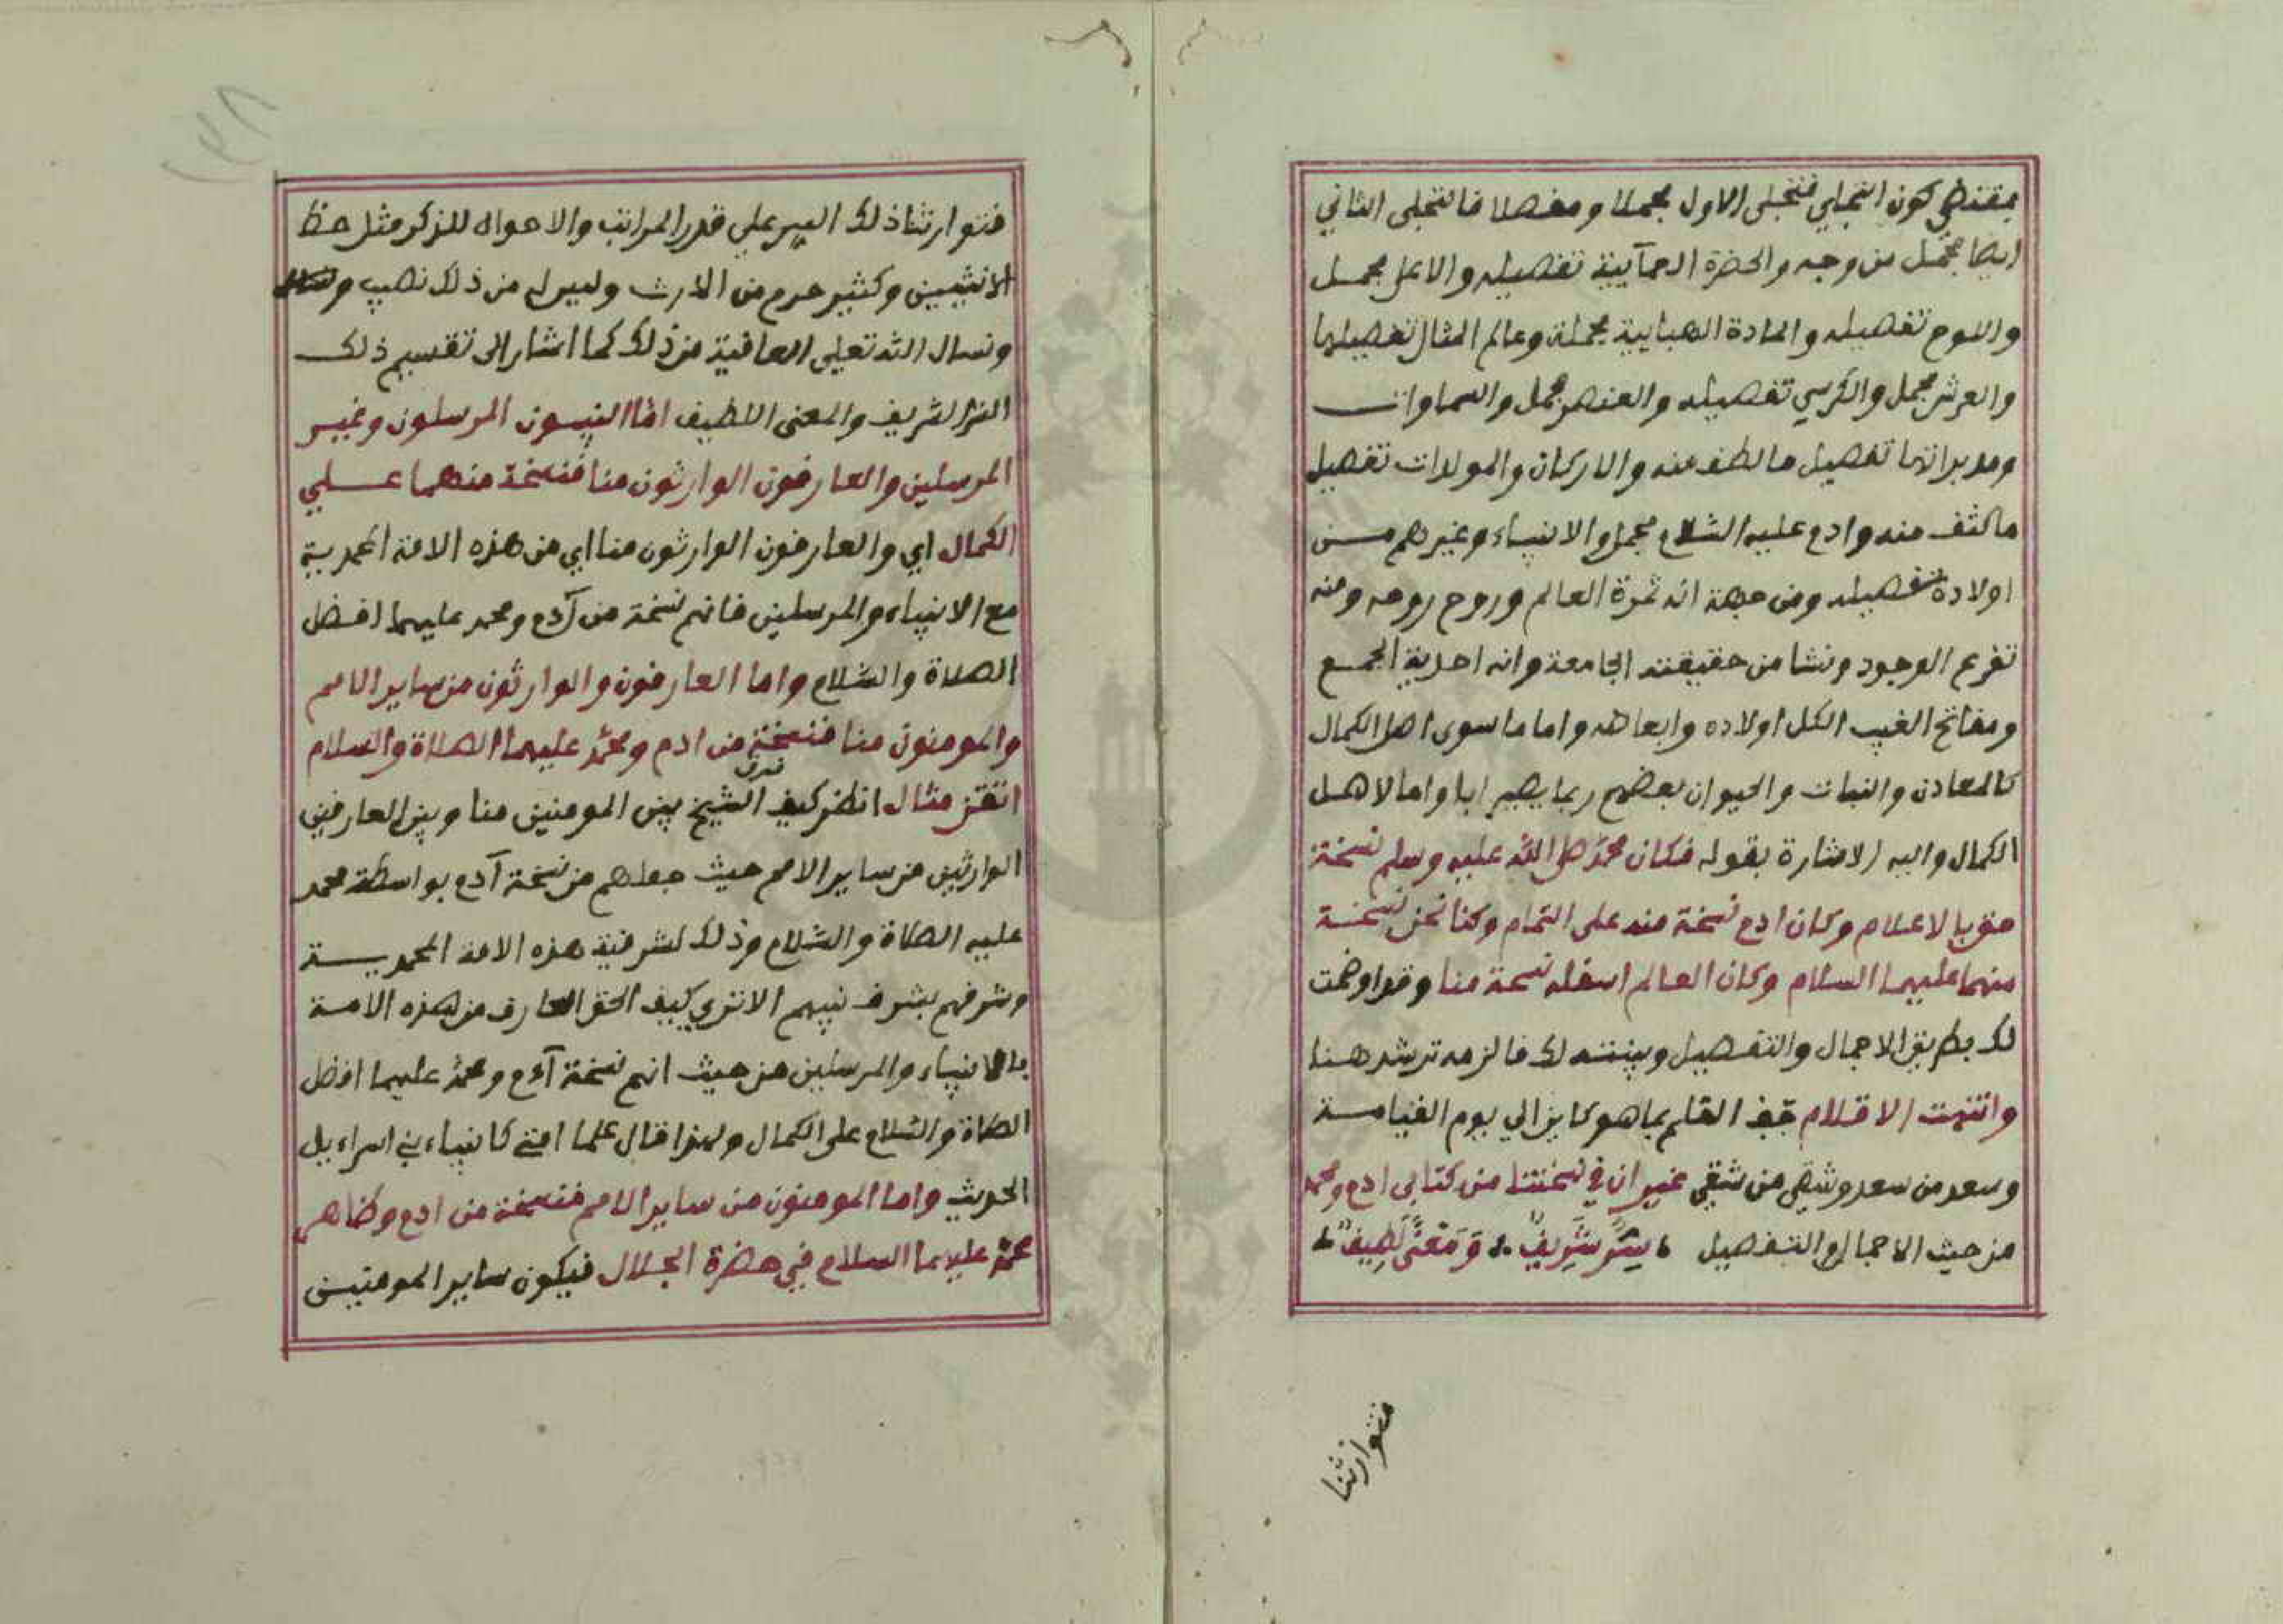 بمقتضي كون التجلي فتجلى الاول مجملا ومفصلا فالتجلى الثاني
ايضا مجمل من وجه والحضرة العمآيية تفصيله والاعلى مجمل
واللوح تفصيله والمادة الهبايية مجملة وعالم المثال تفصيلها
والعرش مجمل والكرسي تفصيله والعنصر مجمل والسماوات
ومدبراتها تفصيل مالطف منه والاركان والمولدات تفصيل
ماكثف منه وادم عليه السلام مجمل والانبياء وغيرهم من
اولاده تفصيله ومن جهة انه ثمرة العالم وروح روحه ومنه
تفرع الوجود ونشا من حقيقته الجامعة وانه احدية الجمع
ومفاتح الغيب الكل اولاده وابعاضه واما ماسوى اهل الكمال
كالمعادن والنبات والحيوان بعضهم ربما يصير ابا واما لاهل
الكمال واليه الاشارة بقوله فكان محمد صلى الله عليه وسلم نسخة
حق بالاعلام وكان ادم نسخة منه على التمام وكنا نحن نسخة
منهما عليهما السلام وكان العالم اسفله نسخة منا وقد اوضحت
لك بطريق الاجمال والتفصيل وبينته لك فالزمه ترشد هنا
وانتهت الاقلام جف القلم بما هو كاين الي يوم القيامة
وسعد من سعد وشقي من شقي غير ان في نسختنا من كتابي ادم ومحمد
من حيث الاجمال والتفصيل سِرٌّ شَرِيفٌ وَمَعْنًى لَطِيفٌ
فتوارثنا
فتوارثنا ذلك السر علي قدر المراتب والاحوال للذكر مثل حظ
الانثيين وكثير حرم من الارث وليس له من ذلك نصيب
ونسال الله تعلى العافية من ذلك كما اشار الى تقسيم ذلك
السر الشريف والمعنى اللطيف اما النبيون المرسلون وغير
المرسلين والعارفون الوارثون منا فنسخة منهما علي
الكمال اي والعارفون الوارثون منا اي من هذه الامة المحمدية
مع الانبياء والمرسلين فانهم نسخة من آدم ومحمد عليهما افضل
الصلاة والسلام واما العارفون والوارثون من ساير الامم
والمومنون منا فنسخة من ادم ومحمد عليهما الصلاة والسلام
فرق
انظر كيف الشيخ بين المومنين منا وبين العارفين
الوارثين من ساير الامم حيث جعلهم من نسخة آدم بواسطة محمد
عليه الصلاة والسلام وذلك لشرفية هذه الامة المحمدية
وشرفهم بشرف نبيهم الاترى كيف الحق العارف من هذه الامة
بالانبياء والمرسلين من حيث انهم نسخة آدم ومحمد عليهما افضل
الصلاة والسلام على الكمال ولهذا قال علما امتي كانبياء بني اسراءيل
الحديث واما المومنون من ساير الامم فنسخة من ادم وظاهر
محمد عليهما السلام في حضرة الجلال فيكون ساير المومنين